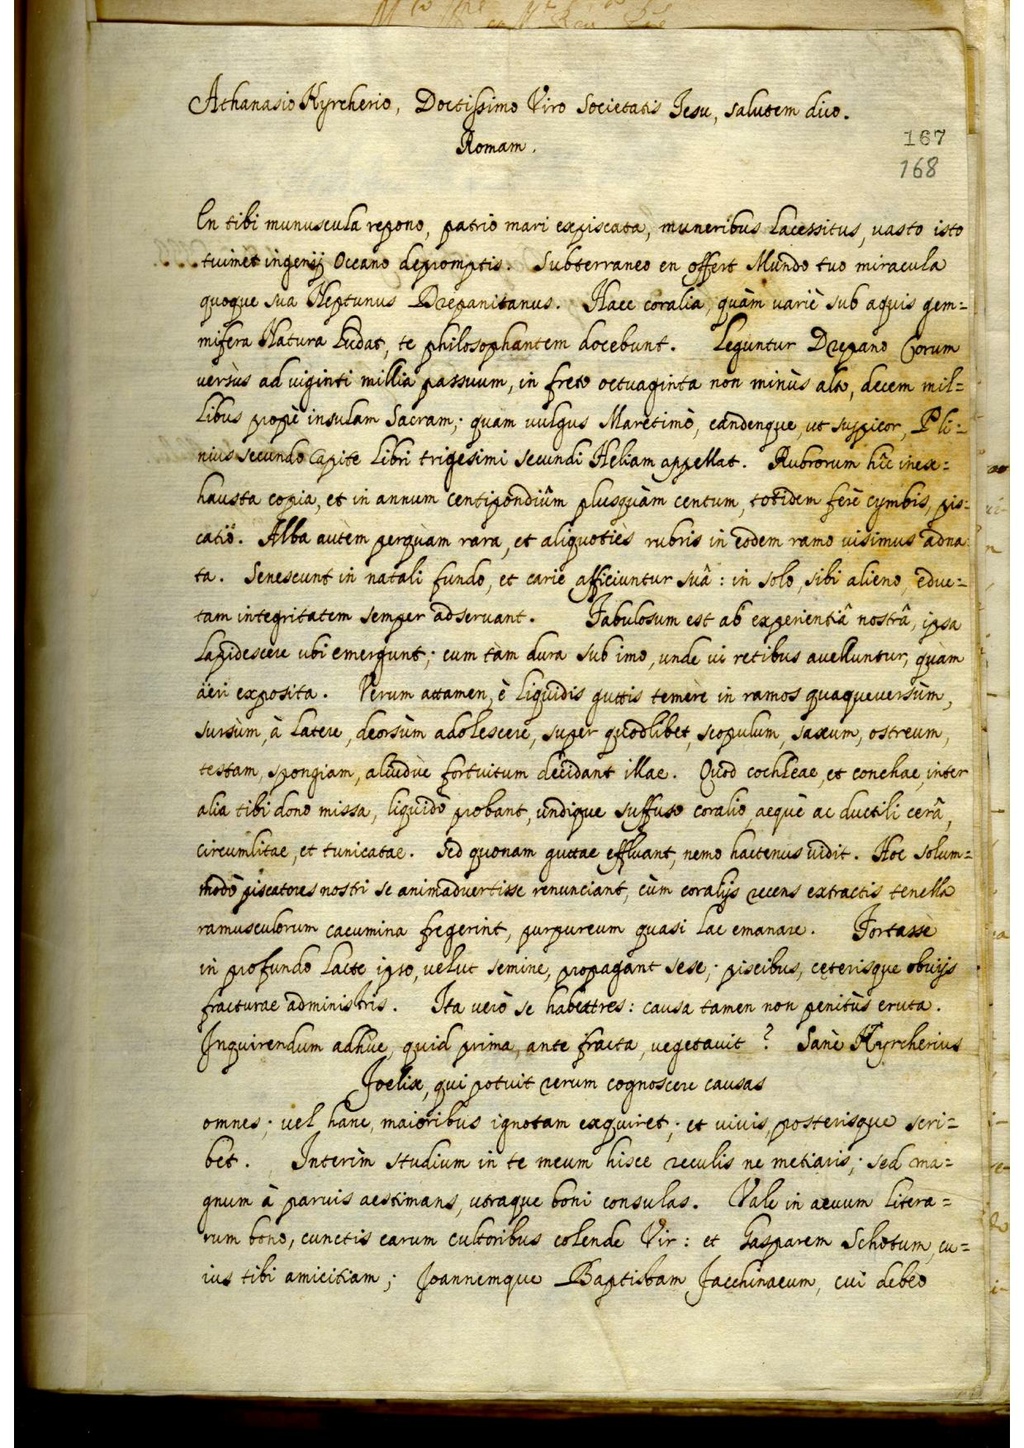 Athanasio Kyrcherio, Doctissimo Viro Societatis Iesu, salutem dico.
Romam.
167
168
En tibi munuscula repono, patrio mari expiscata, muneribus lacessitus, vasto isto
tuimet ingenij Oceano depromptis. Subterraneo en offert Mundo tuo miracula
quoque sua Neptunus Drepanitanus. Haec coralia, quàm variè sub aquis gem=
mifera Natura ludat, te philosophantem docebunt. Leguntur Drepano Corum
versùs ad viginti millia passuum, in freto octuaginta non minùs alto, decem mil=
libus propè insulam Sacram; quam vulgus Maretimò, eandenque, ut suspicor, Pli=
nius secundo Capite libri trigesimi secundi Heliam appellat. Rubrorum hîc inex=
hausta copia, et in annum centipondiûm plusquàm centum, totidem ferè cymbis, pis=
catio. Alba autèm perquàm rara, et aliquotiès rubris in eodem ramo visimus adna
ta. Senescunt in natali fundo, et carie afficiuntur suâ: in solo, sibi alieno, educ=
tam integritatem semper adservant. Fabulosum est ab experientiâ nostrâ, ipsa
lapidescere ubi emergunt; cum tàm dura sub imo, unde vi retibus avelluntur, quàm
äeri exposita. Verum attamen, è liquidis guttis temerè in ramos quaqueversùm,
sursùm, à latere, deorsùm adolescere, super quodlibet, scopulum, saxum, ostreum,
testam, spongiam, aliudue fortuitum decidant illae. Quod cochleae, et conchae, inter
alia tibi dono missa, liquidò probant, undique suffuso coralio, aequè ac ductili cerâ,
circumlitae, et tunicatae. Sed quonam guttae effluant, nemo hactenus vidit. Hoc solum=
modò piscatores nostri se animadvertisse renunciant, cùm coralijs recens extractis tenella
ramusculorum cacumina fregerint, purpureum quasi lac emanare. Fortassè
in profundo lacte ipso, velut semine, propagant sese; piscibus, ceterisque obvijs
fracturae administris. Ita verò se habeat res: causa tamen non penitùs eruta.
Inquirendum adhuc, quid prima, ante fracta, vegetavit? Sanè Kyrcherius
Foelix, qui potuit rerum cognoscere causas
omnes; vel hanc, maioribus ignotam exquiret; et vivis, posterisque scri=
bet. Interìm studium in te meum hisce reculis ne metiaris; sed ma=
gnum à parvis aestimans, utraque boni consulas. Vale in aevum litera=
rum bono, cunctis earum cultoribus colende Vir: et Gasparem Schotum, cu=
ius tibi amicitiam; Joannemque Baptistam Jacchinaeum, cui debeo